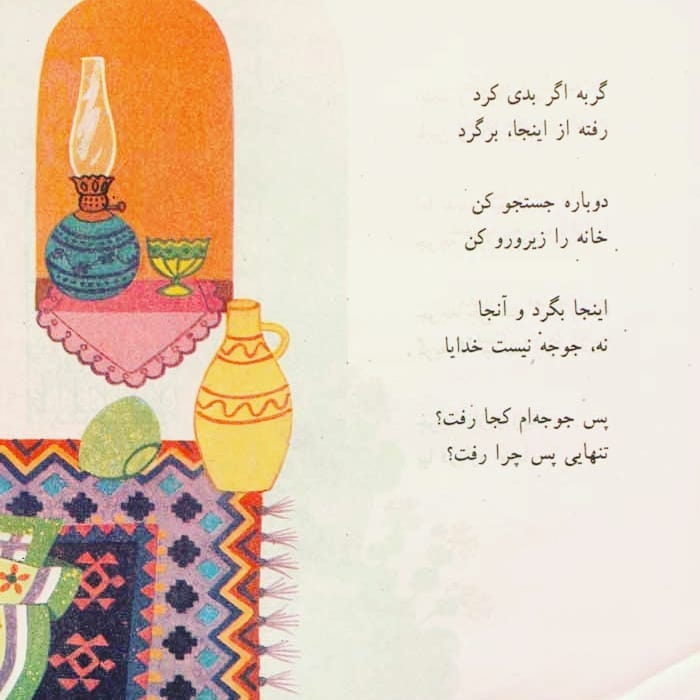 گربه اگر بدی کرد
رفته از اینجا، برگرد
دوباره جستجو کن
خانه را زیرورو کن
اینجا بگرد و آنجا
نه، جوجه نیست خدایا
پس جوجه‌ام کجا رفت؟
تنهایی پس چرا رفت؟